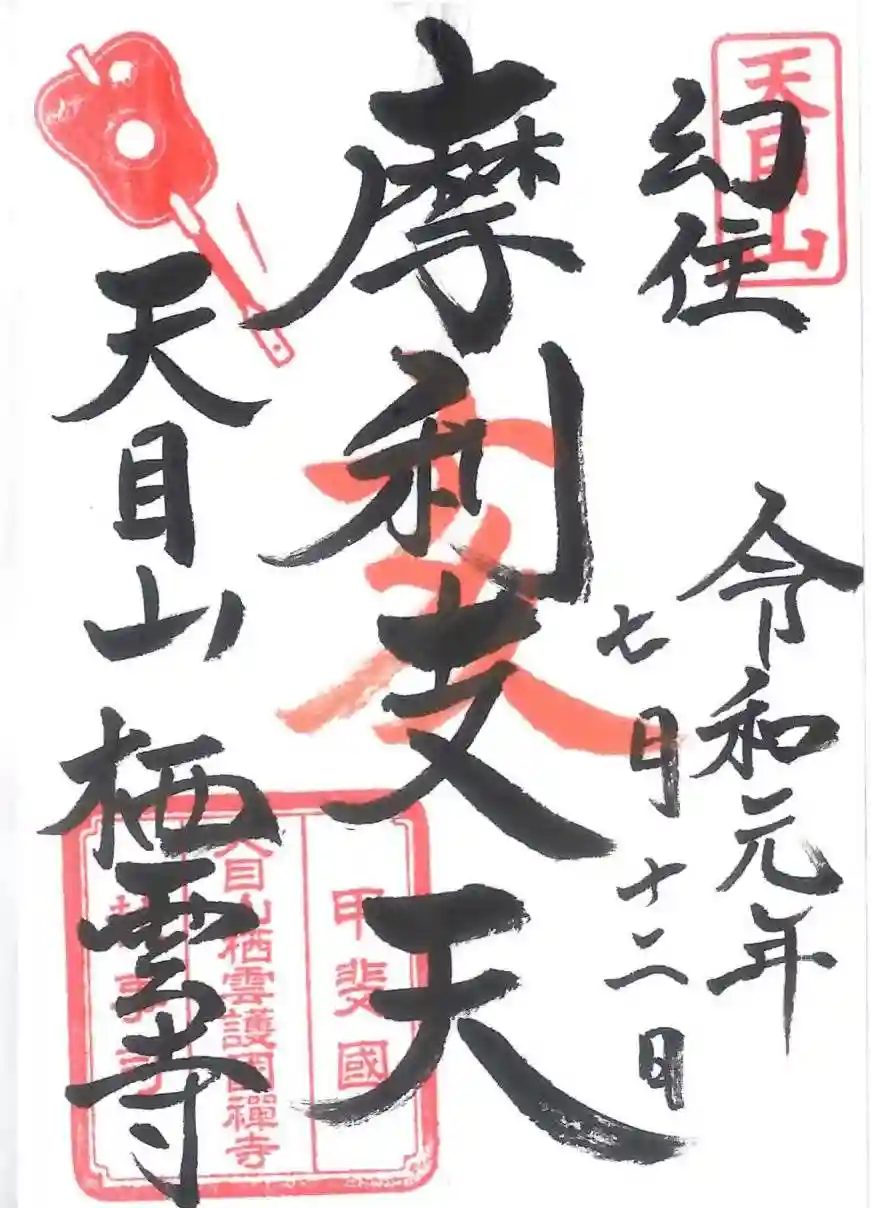 天目山
幻住
令和元年
七月十二日
摩利支天
天目山
栖雲寺
甲斐國
天目山栖雲護國禪寺